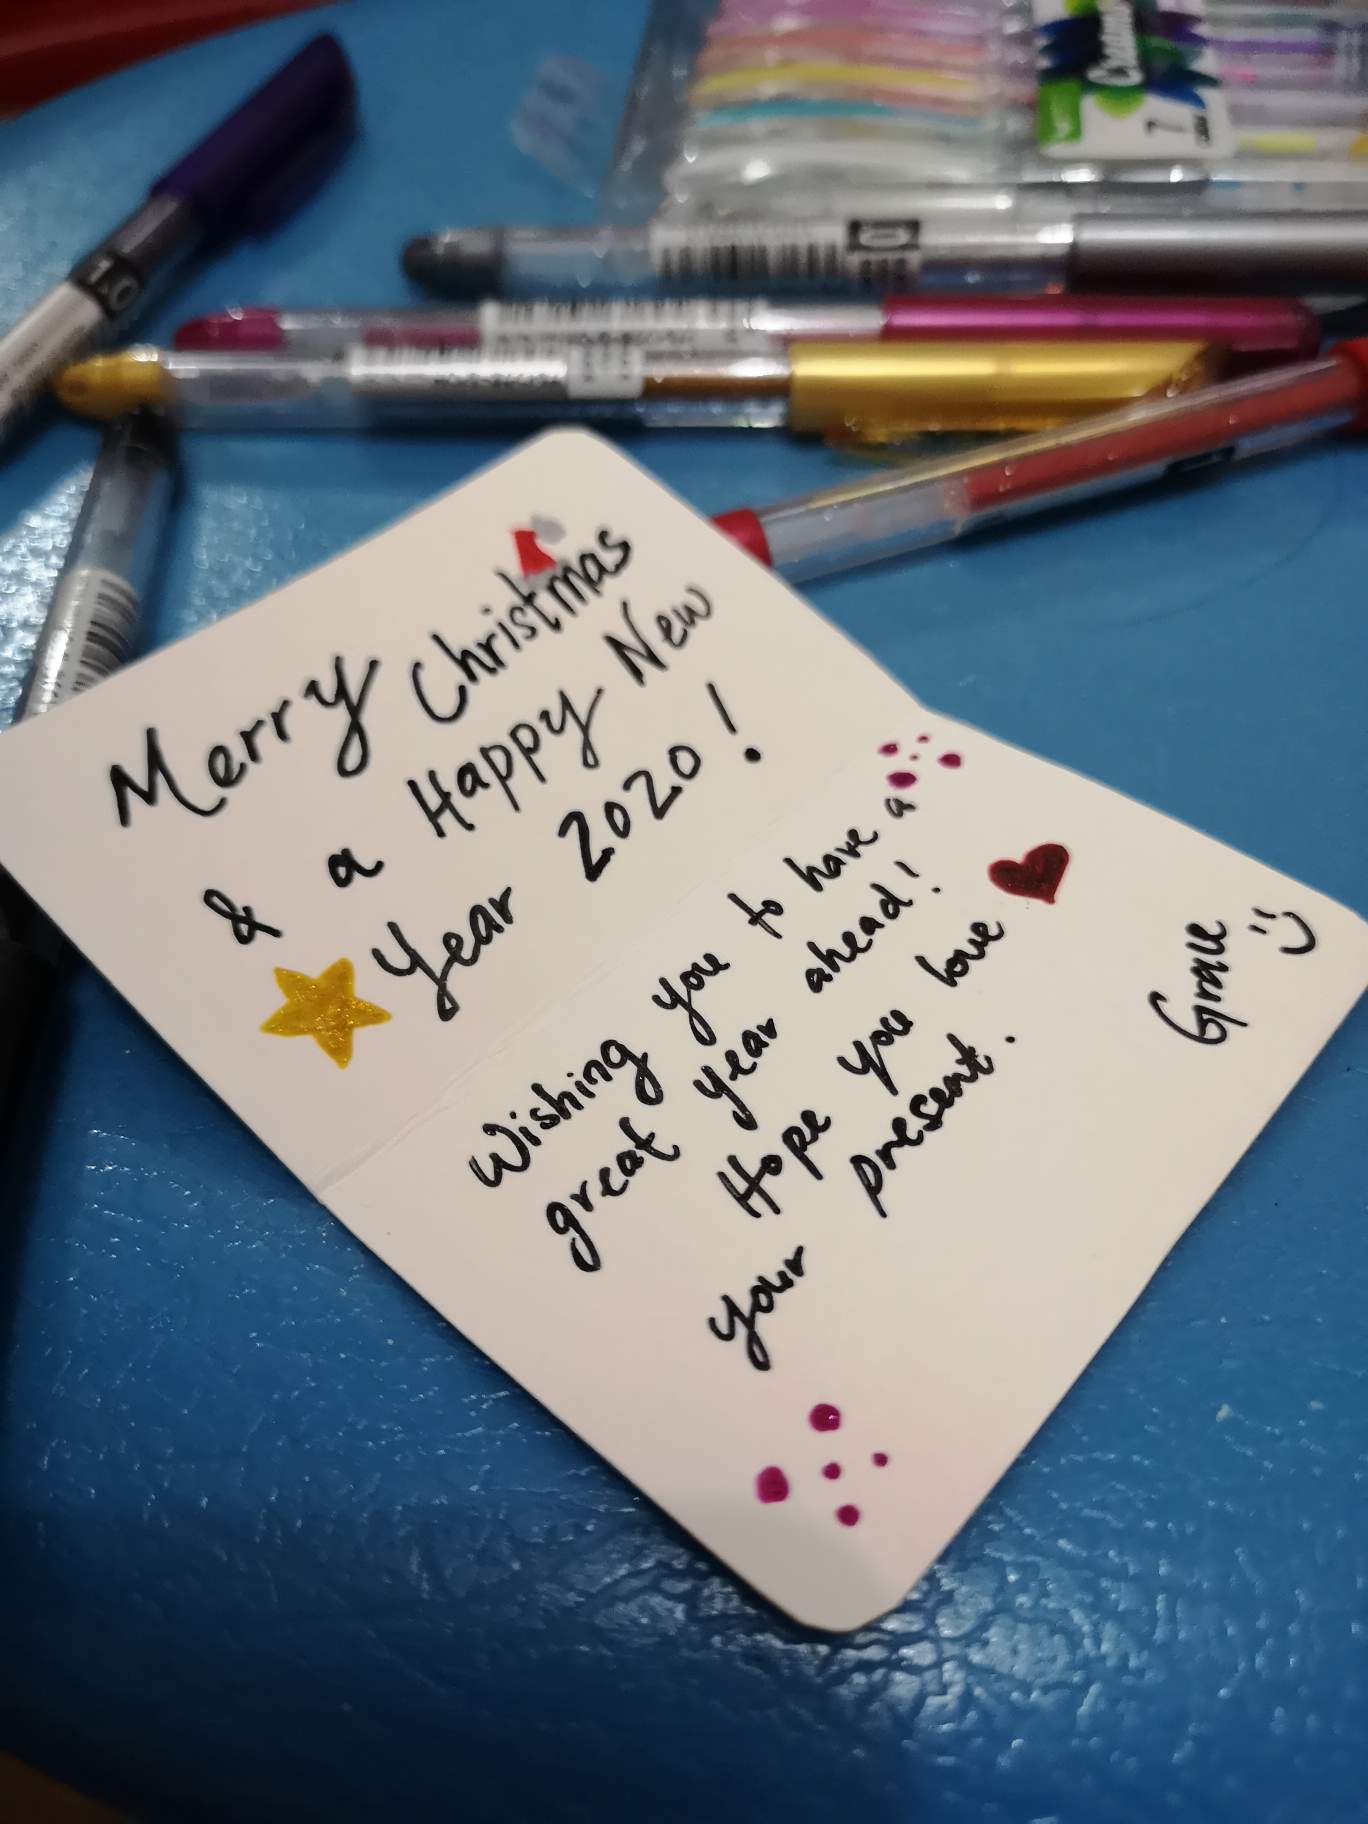 Merry Christmas
& a Happy New
Year 2020!
Wishing you to have a
great year ahead!
Hope you love
your present.
Grace
1.0
7